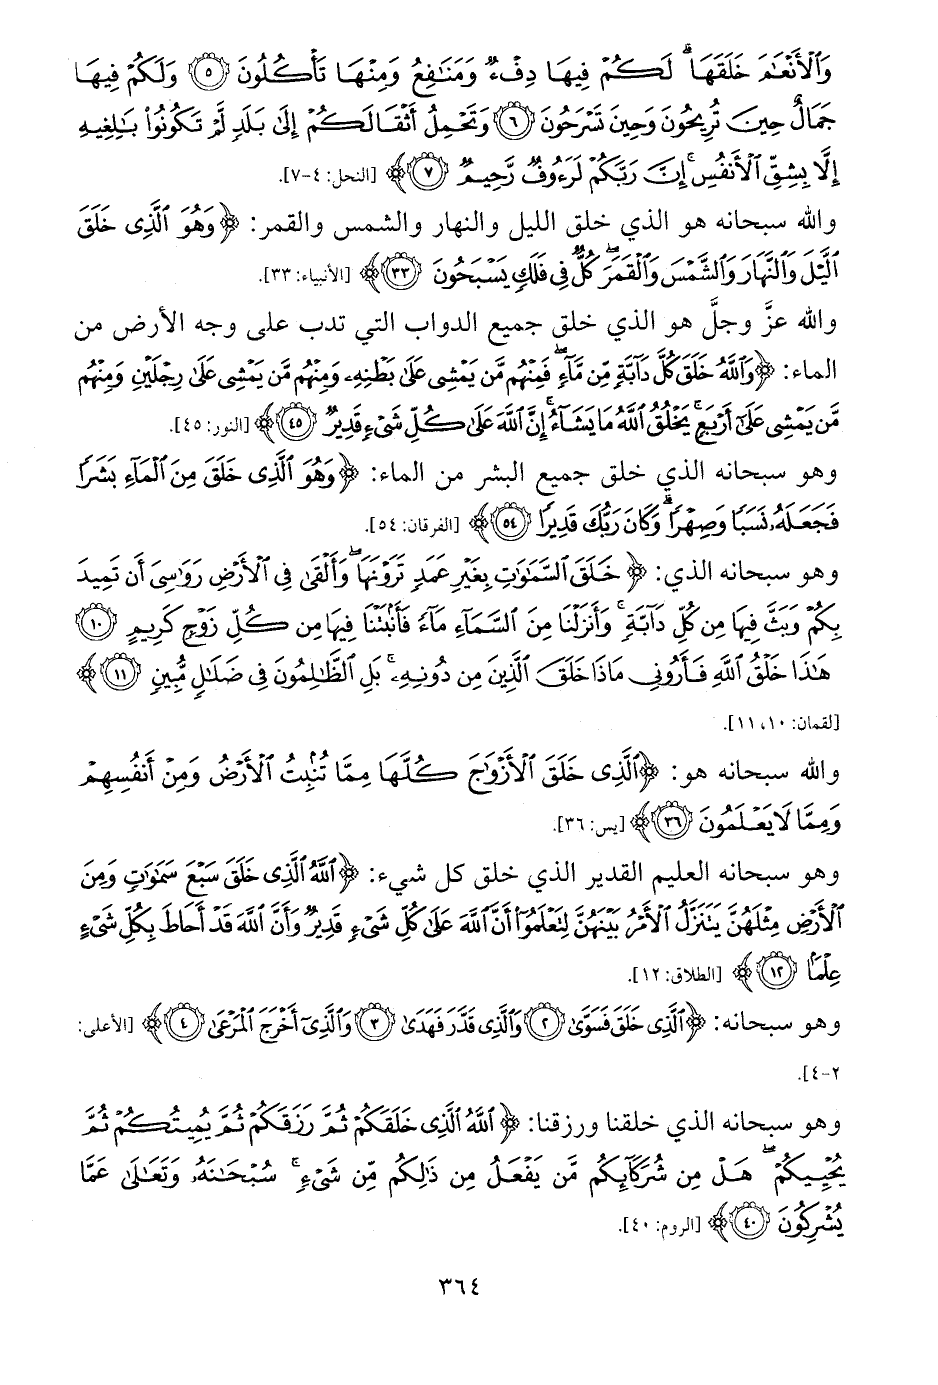 وَٱلْأَنْعَـٰمَ خَلَقَهَا ۗ لَكُمْ فِيهَا دِفْءٌ وَمَنَـٰفِعُ وَمِنْهَا تَأْكُلُونَ ٥ وَلَكُمْ فِيهَا
جَمَالٌ حِينَ تُرِيحُونَ وَحِينَ تَسْرَحُونَ ٦ وَتَحْمِلُ أَثْقَالَكُمْ إِلَىٰ بَلَدٍ لَّمْ تَكُونُوا۟ بَـٰلِغِيهِ
إِلَّا بِشِقِّ ٱلْأَنفُسِ ۚ إِنَّ رَبَّكُمْ لَرَءُوفٌ رَّحِيمٌ ٧ ﴾ [النحل: ٤-٧].
والله سبحانه هو الذي خلق الليل والنهار والشمس والقمر: ﴿ وَهُوَ ٱلَّذِى خَلَقَ
ٱلَّيْلَ وَٱلنَّهَارَ وَٱلشَّمْسَ وَٱلْقَمَرَ ۖ كُلٌّ فِى فَلَكٍ يَسْبَحُونَ ٣٣ ﴾ [الأنبياء: ٣٣].
والله عزَّ وجلَّ هو الذي خلق جميع الدواب التي تدب على وجه الأرض من
الماء: ﴿ وَٱللَّهُ خَلَقَ كُلَّ دَآبَّةٍ مِّن مَّآءٍ ۖ فَمِنْهُم مَّن يَمْشِى عَلَىٰ بَطْنِهِۦ وَمِنْهُم مَّن يَمْشِى عَلَىٰ رِجْلَيْنِ وَمِنْهُم
مَّن يَمْشِى عَلَىٰٓ أَرْبَعٍ ۚ يَخْلُقُ ٱللَّهُ مَا يَشَآءُ ۚ إِنَّ ٱللَّهَ عَلَىٰ كُلِّ شَىْءٍ قَدِيرٌ ٤٥ ﴾ [النور: ٤٥].
وهو سبحانه الذي خلق جميع البشر من الماء: ﴿ وَهُوَ ٱلَّذِى خَلَقَ مِنَ ٱلْمَآءِ بَشَرًا
فَجَعَلَهُۥ نَسَبًا وَصِهْرًا ۗ وَكَانَ رَبُّكَ قَدِيرًا ٥٤ ﴾ [الفرقان: ٥٤].
وهو سبحانه الذي: ﴿ خَلَقَ ٱلسَّمَـٰوَٰتِ بِغَيْرِ عَمَدٍ تَرَوْنَهَا ۖ وَأَلْقَىٰ فِى ٱلْأَرْضِ رَوَٰسِىَ أَن تَمِيدَ
بِكُمْ وَبَثَّ فِيهَا مِن كُلِّ دَآبَّةٍ ۚ وَأَنزَلْنَا مِنَ ٱلسَّمَآءِ مَآءً فَأَنۢبَتْنَا فِيهَا مِن كُلِّ زَوْجٍ كَرِيمٍ ١٠
هَـٰذَا خَلْقُ ٱللَّهِ فَأَرُونِى مَاذَا خَلَقَ ٱلَّذِينَ مِن دُونِهِۦ ۚ بَلِ ٱلظَّـٰلِمُونَ فِى ضَلَـٰلٍ مُّبِينٍ ١١ ﴾
[لقمان: ١٠، ١١].
والله سبحانه هو: ﴿ ٱلَّذِى خَلَقَ ٱلْأَزْوَٰجَ كُلَّهَا مِمَّا تُنۢبِتُ ٱلْأَرْضُ وَمِنْ أَنفُسِهِمْ
وَمِمَّا لَا يَعْلَمُونَ ٣٦ ﴾ [يس: ٣٦].
وهو سبحانه العليم القدير الذي خلق كل شيء: ﴿ ٱللَّهُ ٱلَّذِى خَلَقَ سَبْعَ سَمَـٰوَٰتٍ وَمِنَ
ٱلْأَرْضِ مِثْلَهُنَّ يَتَنَزَّلُ ٱلْأَمْرُ بَيْنَهُنَّ لِتَعْلَمُوٓا۟ أَنَّ ٱللَّهَ عَلَىٰ كُلِّ شَىْءٍ قَدِيرٌ وَأَنَّ ٱللَّهَ قَدْ أَحَاطَ بِكُلِّ شَىْءٍ
عِلْمًۢا ١٢ ﴾ [الطلاق: ١٢].
وهو سبحانه: ﴿ ٱلَّذِى خَلَقَ فَسَوَّىٰ ٢ وَٱلَّذِى قَدَّرَ فَهَدَىٰ ٣ وَٱلَّذِىٓ أَخْرَجَ ٱلْمَرْعَىٰ ٤ ﴾ [الأعلى:
٢-٤].
وهو سبحانه الذي خلقنا ورزقنا: ﴿ ٱللَّهُ ٱلَّذِى خَلَقَكُمْ ثُمَّ رَزَقَكُمْ ثُمَّ يُمِيتُكُمْ ثُمَّ
يُحْيِيكُمْ ۖ هَلْ مِن شُرَكَآئِكُم مَّن يَفْعَلُ مِن ذَٰلِكُم مِّن شَىْءٍ ۚ سُبْحَـٰنَهُۥ وَتَعَـٰلَىٰ عَمَّا
يُشْرِكُونَ ٤٠ ﴾ [الروم: ٤٠].
٣٦٤